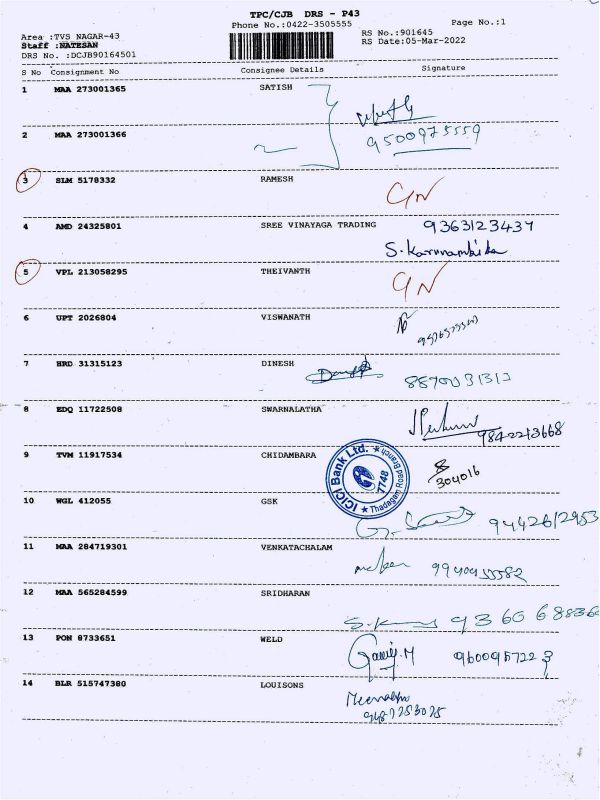 TPC/CJB DRS - P43
Phone No.:0422-3505555
Page No.:1
Area :TVS NAGAR-43
RS No.:901645
Staff :NATESAN
RS Date:05-Mar-2022
DRS No. :DCJB90164501
S No Consignment No Consignee Details Signature
1 MAA 273001365 SATISH
2 MAA 273001366
9500975559
3 SLM 5178332 RAMESH
GN
4 AMD 24325801 SREE VINAYAGA TRADING 9363123437
S. Karunambika
5 VPL 213058295 THEIVANTH
GN
6 UPT 2026804 VISWANATH
7 HRD 31315123 DINESH
8870031313
8 EDQ 11722508 SWARNALATHA
9842213668
9 TVM 11917534 CHIDAMBARA
ICICI Bank Ltd.
1748
Thadagam Road Branch
304016
10 WGL 412055 GSK
9442612953
11 MAA 284719301 VENKATACHALAM
12 MAA 565284599 SRIDHARAN
13 PON 8733651 WELD
9600957223
14 BLR 515747380 LOUISONS